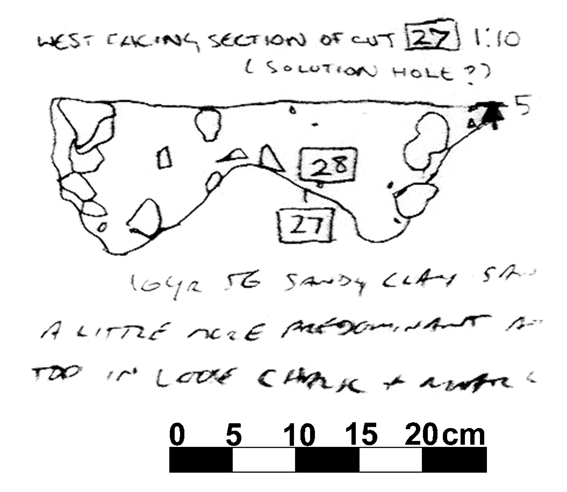 WEST FACING SECTION OF CUT 27 1:10
(SOLUTION HOLE?)
5
28
27
10YR 56 SANDY CLAY
A LITTLE MORE PREDOMINANT
TOO IN LOOSE CHALK +
0 5 10 15 20 cm